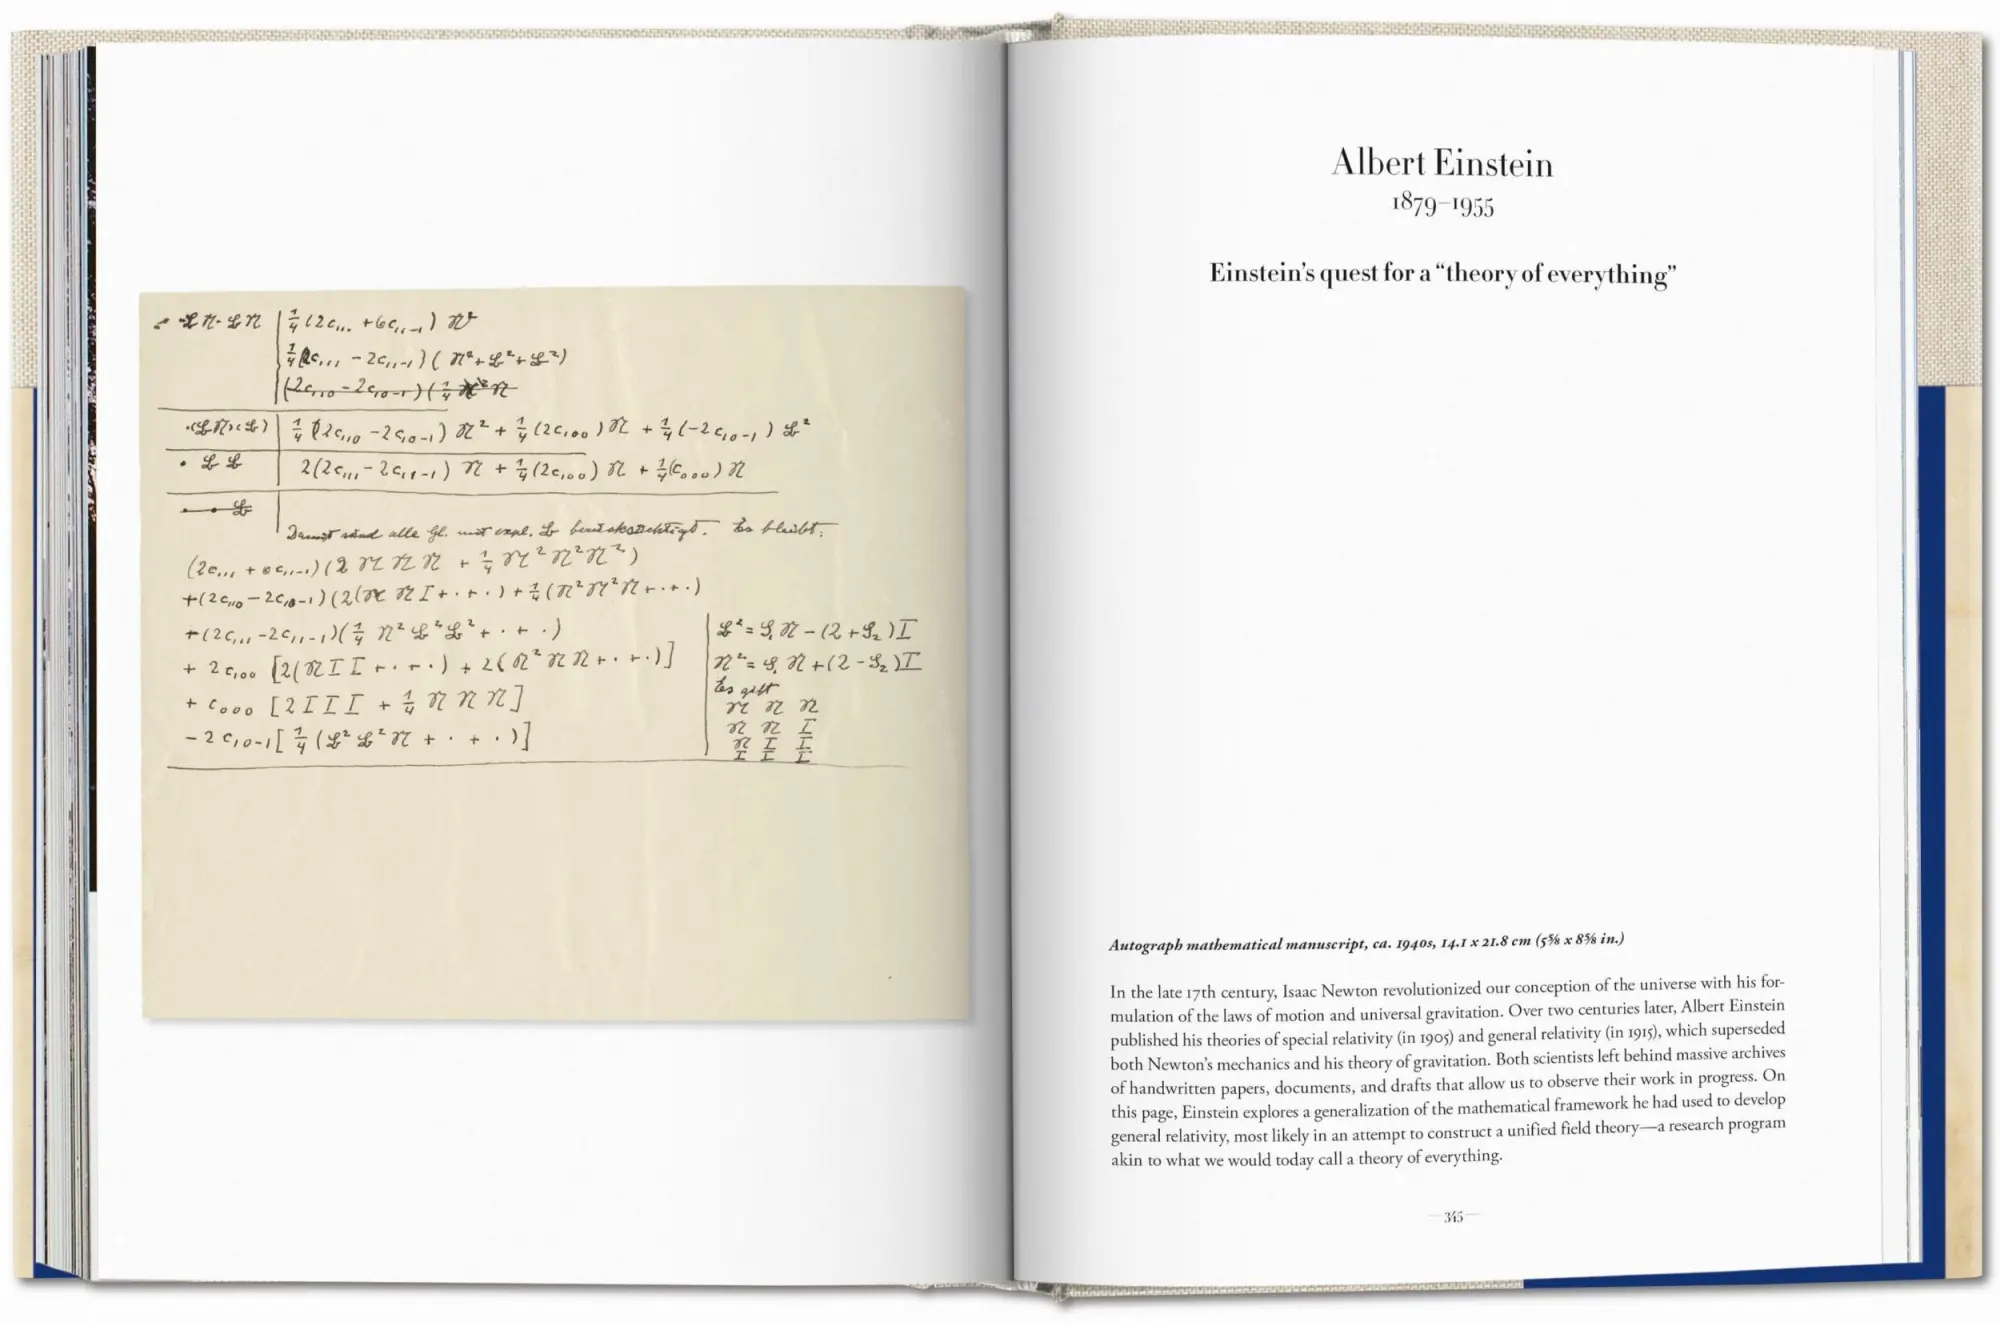 · 𝔏 𝔑 · 𝔏 𝔑 | ¼ (2c₁₁₁ + 6c₁₁₋₁)
¼ (2c₁₁₁ − 2c₁₁₋₁) (𝔑² + 𝔏² + 𝔏²)
(2c₁₁₀ − 2c₁₀₋₁) (¼ 𝔑
·(𝔏𝔑)(𝔏) | ¼ (2c₁₁₀ − 2c₁₀₋₁) 𝔑² + ¼ (2c₁₀₀) 𝔑 + ¼ (−2c₁₀₋₁) 𝔏²
· 𝔏 𝔏 | 2(2c₁₁₁ − 2c₁₁₋₁) 𝔑 + ¼ (2c₁₀₀) 𝔑 + ¼ (c₀₀₀) 𝔑
𝔏
Damit sind alle Gl. mit expl. 𝔏 berücksichtigt. Es bleibt:
(2c₁₁₁ + 6c₁₁₋₁) (2 𝔑 𝔑 𝔑 + ¼ 𝔑² 𝔑² 𝔑²)
+ (2c₁₁₀ − 2c₁₀₋₁) (2(𝔑 𝔑 I + · + ·) + ¼ (𝔑² 𝔑² 𝔑 + · + ·)
+ (2c₁₁₁ − 2c₁₁₋₁) (¼ 𝔑² 𝔏² 𝔏² + · + ·)
+ 2c₁₀₀ [2(𝔑 I I + · + ·) + 2(𝔑² 𝔑 𝔑 + · + ·)]
+ c₀₀₀ [2 I I I + ¼ 𝔑 𝔑 𝔑]
− 2c₁₀₋₁ [¼ (𝔏² 𝔏² 𝔑 + · + ·)]
𝔏² = S₁ 𝔑 − (2 + S₂) I
𝔑² = S₁ 𝔑 + (2 − S₂) I
Es gilt
𝔑 𝔑 𝔑
𝔑 𝔑 I
𝔑 I I
I I I
Albert Einstein
1879–1955
Einstein’s quest for a “theory of everything”
Autograph mathematical manuscript, ca. 1940s, 14.1 x 21.8 cm (5⅝ x 8⅝ in.)
In the late 17th century, Isaac Newton revolutionized our conception of the universe with his for-
mulation of the laws of motion and universal gravitation. Over two centuries later, Albert Einstein
published his theories of special relativity (in 1905) and general relativity (in 1915), which superseded
both Newton’s mechanics and his theory of gravitation. Both scientists left behind massive archives
of handwritten papers, documents, and drafts that allow us to observe their work in progress. On
this page, Einstein explores a generalization of the mathematical framework he had used to develop
general relativity, most likely in an attempt to construct a unified field theory—a research program
akin to what we would today call a theory of everything.
— 345 —